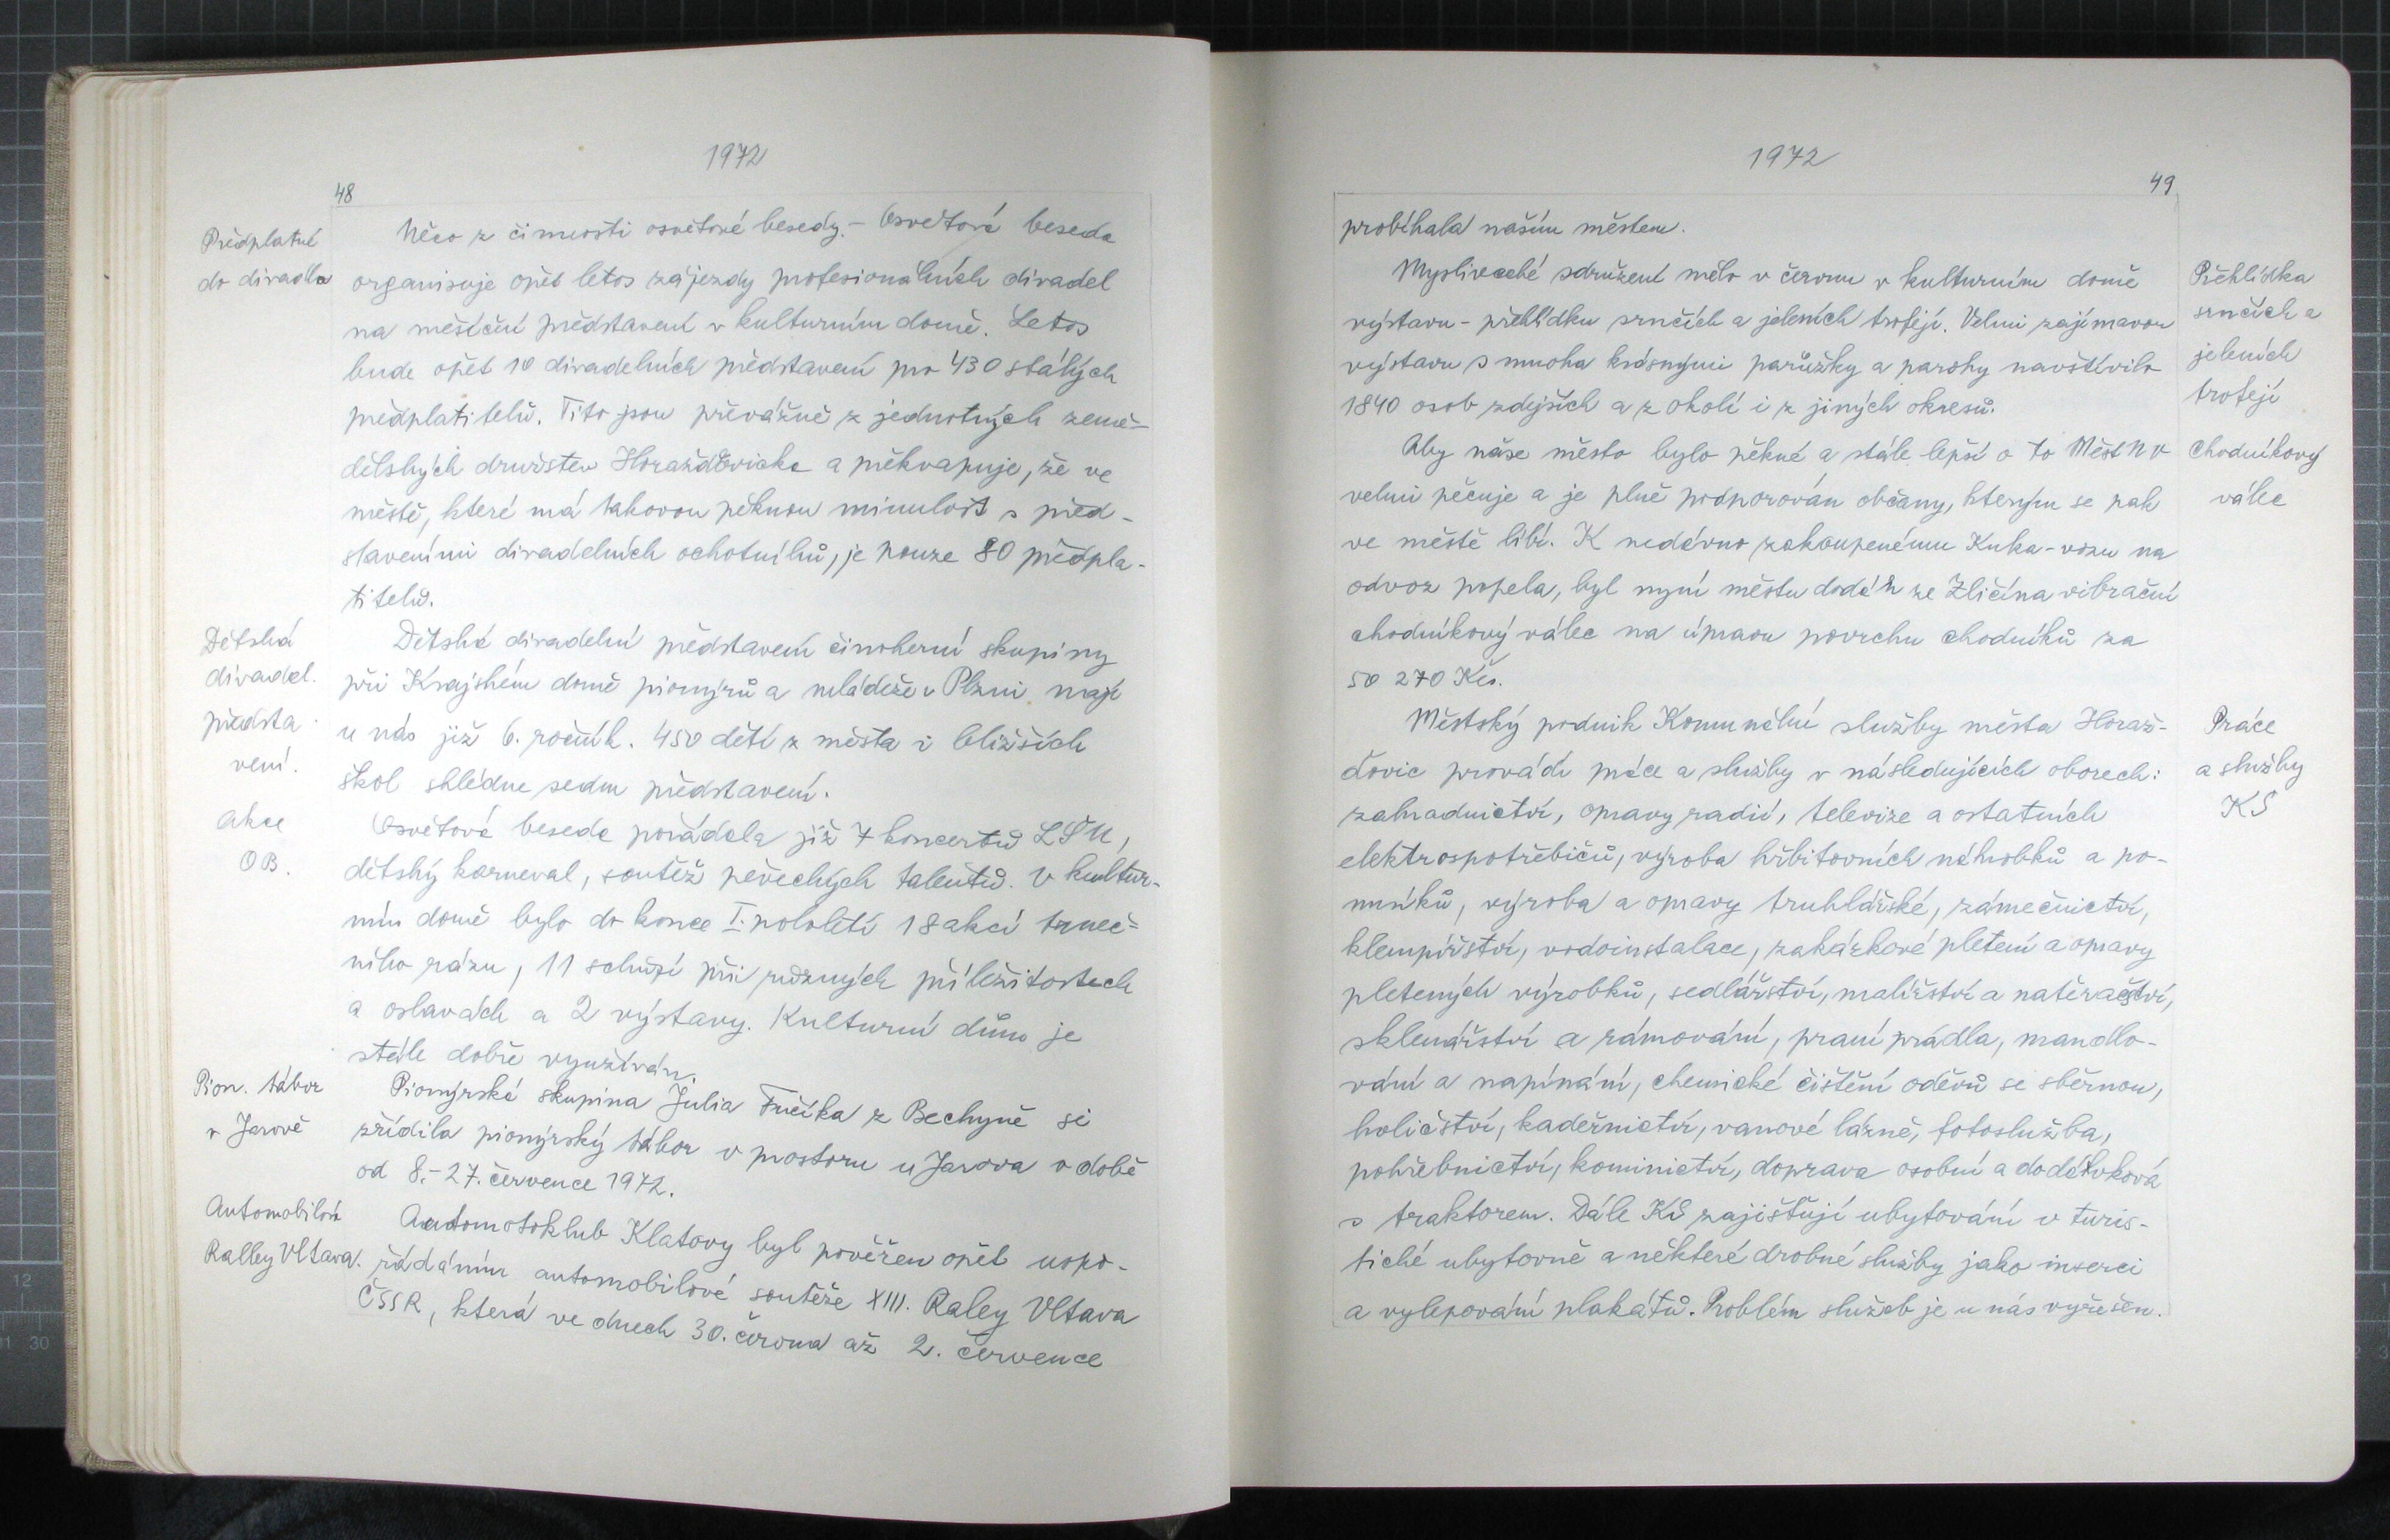 1972
48
Předplatné
do divadla
Něco z činnosti osvětové besedy. – Osvětová beseda
organisuje opět letos zájezdy profesionálních divadel
na měsíční představení v kulturním domě. Letos
bude opět 10 divadelních představení pro 430 stálých
předplatitelů. Tito jsou převážně z jednotných země-
dělských družstev Horažďovicka a překvapuje, že ve
městě, které má takovou pěknou minulost s před-
staveními divadelních ochotníků, je pouze 80 předpla-
titelů.
Dětská
divadel.
předsta-
vení.
Dětská divadelní představení činoherní skupiny
při Krajském domě pionýrů a mládeže v Plzni mají
u nás již 6. ročník. 450 dětí z města i bližších
škol shlédne sedm představení.
Akce
OB.
Osvětová beseda pořádala již 7 koncertů LŠU,
dětský karneval, soutěž pěveckých talentů. V kultur-
ním domě bylo do konce I. pololetí 18 akcí taneč-
ního rázu, 11 schůzí při různých příležitostech
a oslavách a 2 výstavy. Kulturní dům je
stále dobře využíván.
Pion. tábor
v Jarově
Pionýrská skupina Julia Fučíka z Bechyně si
zřídila pionýrský tábor v prostoru u Jarova v době
od 8.–27. července 1972.
Automobilová
Ralley Vltava.
Automotoklub Klatovy byl pověřen opět uspo-
řádáním automobilové soutěže XIII. Raley Vltava
ČSSR, která ve dnech 30. června až 2. července
1972
49
probíhala naším městem.
Myslivecké sdružení mělo v červnu v kulturním domě
výstavu – přehlídku srnčích a jeleních trofejí. Velmi zajímavou
výstavu s mnoha krásnými parůžky a parohy navštívilo
1840 osob zdejších a z okolí i z jiných okresů.
Přehlídka
srnčích a
jeleních
trofejí
Aby naše město bylo pěkné a stále lepší o to MěstNV
velmi pěčuje a je plně podporován občany, kterým se pak
ve městě líbí. K nedávno zakoupenému Kuka-vozu na
odvoz popela, byl nyní městu dodán ze Zličína vibrační
chodníkový válec na úpravu povrchu chodníků za
50 270 Kčs.
Chodníkový
válec
Městský podnik Komunální služby města Horaž-
ďovic provádí práce a služby v následujících oborech:
zahradnictví, opravy radií, televize a ostatních
elektrospotřebičů, výroba hřbitovních náhrobků a po-
mníků, výroba a opravy truhlářské, zámečnictví,
klempířství, vodoinstalace, zakázkové pletení a opravy
pletených výrobků, sedlářství, malířství a natěračství,
sklenářství a rámování, praní prádla, mandlo-
vání a napínání, chemické čištění oděvů se sběrnou,
holičství, kadeřnictví, vanové lázně, fotoslužba,
pohřebnictví, kominictví, doprava osobní a dodávková
s traktorem. Dále KS zajišťují ubytování v turis-
tické ubytovně a některé drobné služby jako inserci
a vylepování plakátů. Problém služeb je u nás vyřešen.
Práce
a služby
KS